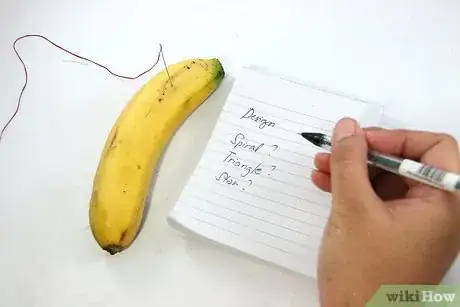 Design
Spiral ?
Triangle ?
Star ?
wikiHow